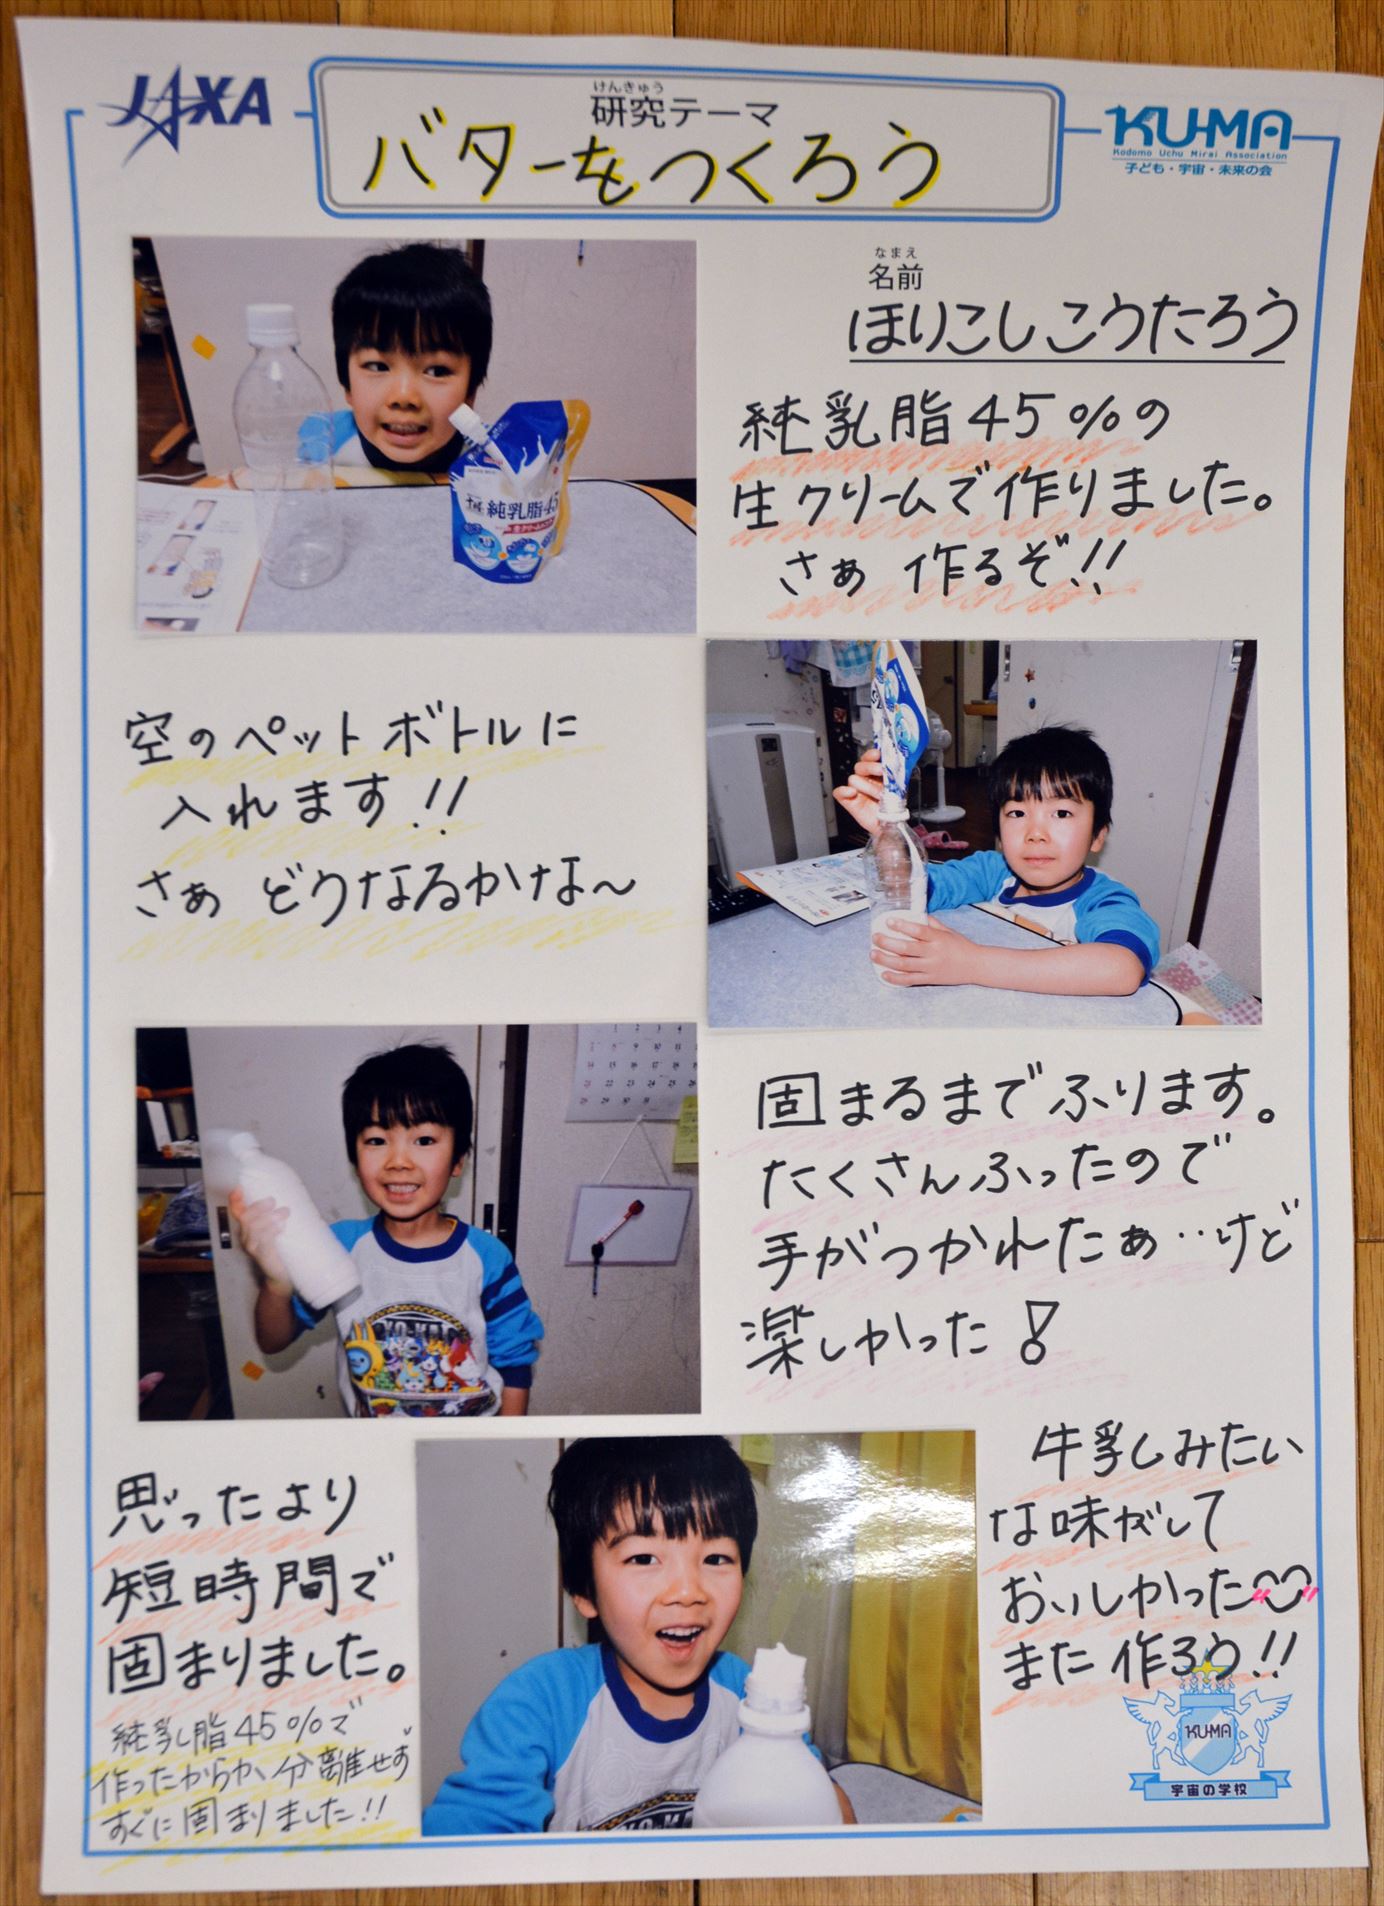 JAXA
けんきゅう
研究テーマ
バターをつくろう
KU-MA
Kodomo Uchu Mirai Association
子ども・宇宙・未来の会
なまえ
名前
ほりこしこうたろう
純乳脂45
純乳脂45%の
生クリームで作りました。
さぁ 作るぞ!!
空のペットボトルに
入れます!!
さぁ どうなるかな〜
固まるまでふります。
たくさんふったので
手がつかれたぁ‥けど
楽しかった!
思ったより
短時間で
固まりました。
純乳脂45%で
作ったからか、分離せず
すぐに固まりました!!
牛乳みたい
な味がして
おいしかった
また作ろう!!
KU-MA
宇宙の学校